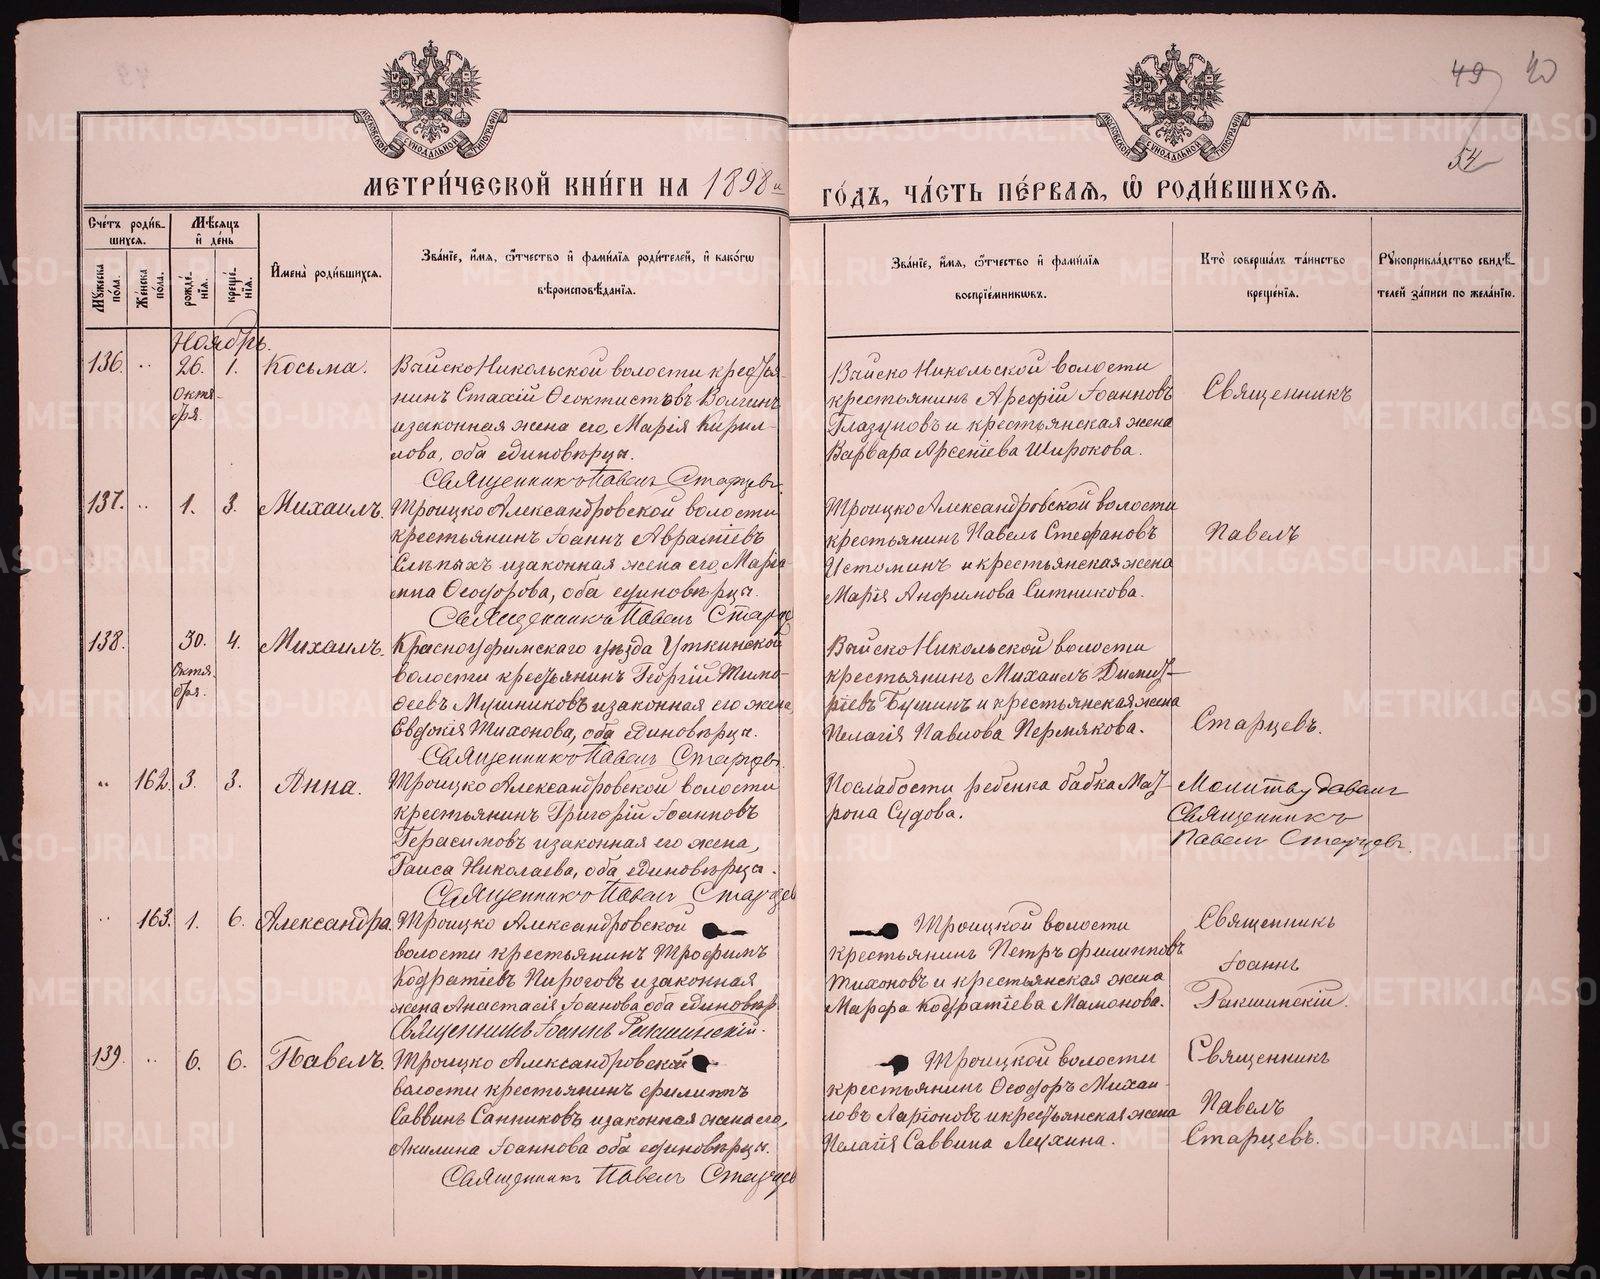 49 50
54
МОСКОВСКОЙ СѴНОДАЛЬНОЙ ТИПОГРАФІИ
МОСКОВСКОЙ СѴНОДАЛЬНОЙ ТИПОГРАФІИ
МЕТРИ́ЧЕСКОЙ КНИ́ГИ НА 1898й ГО́ДЪ, ЧА́СТЬ ПЕ́РВАЯ, Ѡ҆ РОДИ́ВШИХСЯ.
Сче́тъ роди́в-
шихся.
Му́жеска по́ла.
Же́нска по́ла.
Мѣ́сяцъ
и҆ де́нь
рожде́-
нїя.
креще́-
нїя.
И҆мена̀ роди́вшихся.
Зва́нїе, и҆́мя, ѻ҆́тчество и҆ фами́лїя роди́телей, и҆ како́гѡ
вѣроисповѣ́данїя.
Зва́нїе, и҆́мя, ѻ҆́тчество и҆ фами́лїя
воспрїе́мникѡвъ.
Кто̀ соверша́лъ та́инство
креще́нїя.
Рꙋкоприкла́дство свидѣ́-
телей за́писи по жела́нїю.
Ноябрь.
136. .. 26. 1. Косьма.
Октя-
бря.
Выйско Никольской волости крестья-
нинъ Стахій Ѳеоктистовъ Волгинъ
и законная жена его, Марія Кирил-
лова, оба единовѣрцы.
Священникъ Павелъ Старцевъ.
Выйско Никольской волости
крестьянинъ Арефій Іоанновъ
Глазуновъ и крестьянская жена
Варвара Арсеніева Широкова.
Священникъ
137. .. 1. 3. Михаилъ.
Троицко Александровской волости
крестьянинъ Іоаннъ Авраміевъ
Слѣпыхъ и законная жена его, Маріа
мна Ѳеодорова, оба единовѣрцы.
Священникъ Павелъ Старце
Троицко Александровской волости
крестьянинъ Павелъ Стефановъ
Истоминъ и крестьянская жена
Марія Анфимова Ситникова.
Павелъ
138. 30. 4. Михаилъ.
Октя-
бря.
Красноуфимскаго уѣзда Уткинской
волости крестьянинъ Георгій Тимо-
ѳеевъ Мушниковъ и законная его жена,
Евдокія Тихонова, оба единовѣрцы.
Священникъ Павелъ Старцевъ.
Выйско Никольской волости
крестьянинъ Михаилъ Димит-
ріевъ Бушинъ и крестьянская жена
Пелагія Павлова Пермякова.
Старцевъ.
.. 162. 3. 3. Анна.
Троицко Александровской волости
крестьянинъ Григорій Іоанновъ
Герасимовъ и законная его жена,
Раиса Николаева, оба единовѣрцы.
Священникъ Павелъ Старцев
По слабости ребенка бабка Мат-
рона Судова.
Молитву давалъ
Священникъ
Павелъ Старцевъ.
.. 163. 1. 6. Александра.
Троицко Александровской
волости крестьянинъ Трофимъ
Кодратіевъ Пироговъ и законная
жена Анастасія Іоанова оба единовѣр.
Священникъ Іоаннъ Ракшинскій.
Троицкой волости
крестьянинъ Петръ Филипповъ
Тихоновъ и крестьянская жена
Марфа Кодратіева Мамонова.
Священникъ
Іоаннъ
Ракшинскій.
139. .. 6. 6. Павелъ.
Троицко Александровской
волости крестьянинъ Филиппъ
Саввинъ Санниковъ и законная жена его,
Акилина Іоаннова оба единовѣрцы.
Священникъ Павелъ Старцев
Троицкой волости
крестьянинъ Ѳеодоръ Михаи-
ловъ Ларіоновъ и крестьянская жена
Пелагія Саввина Лехина.
Священникъ
Павелъ
Старцевъ.